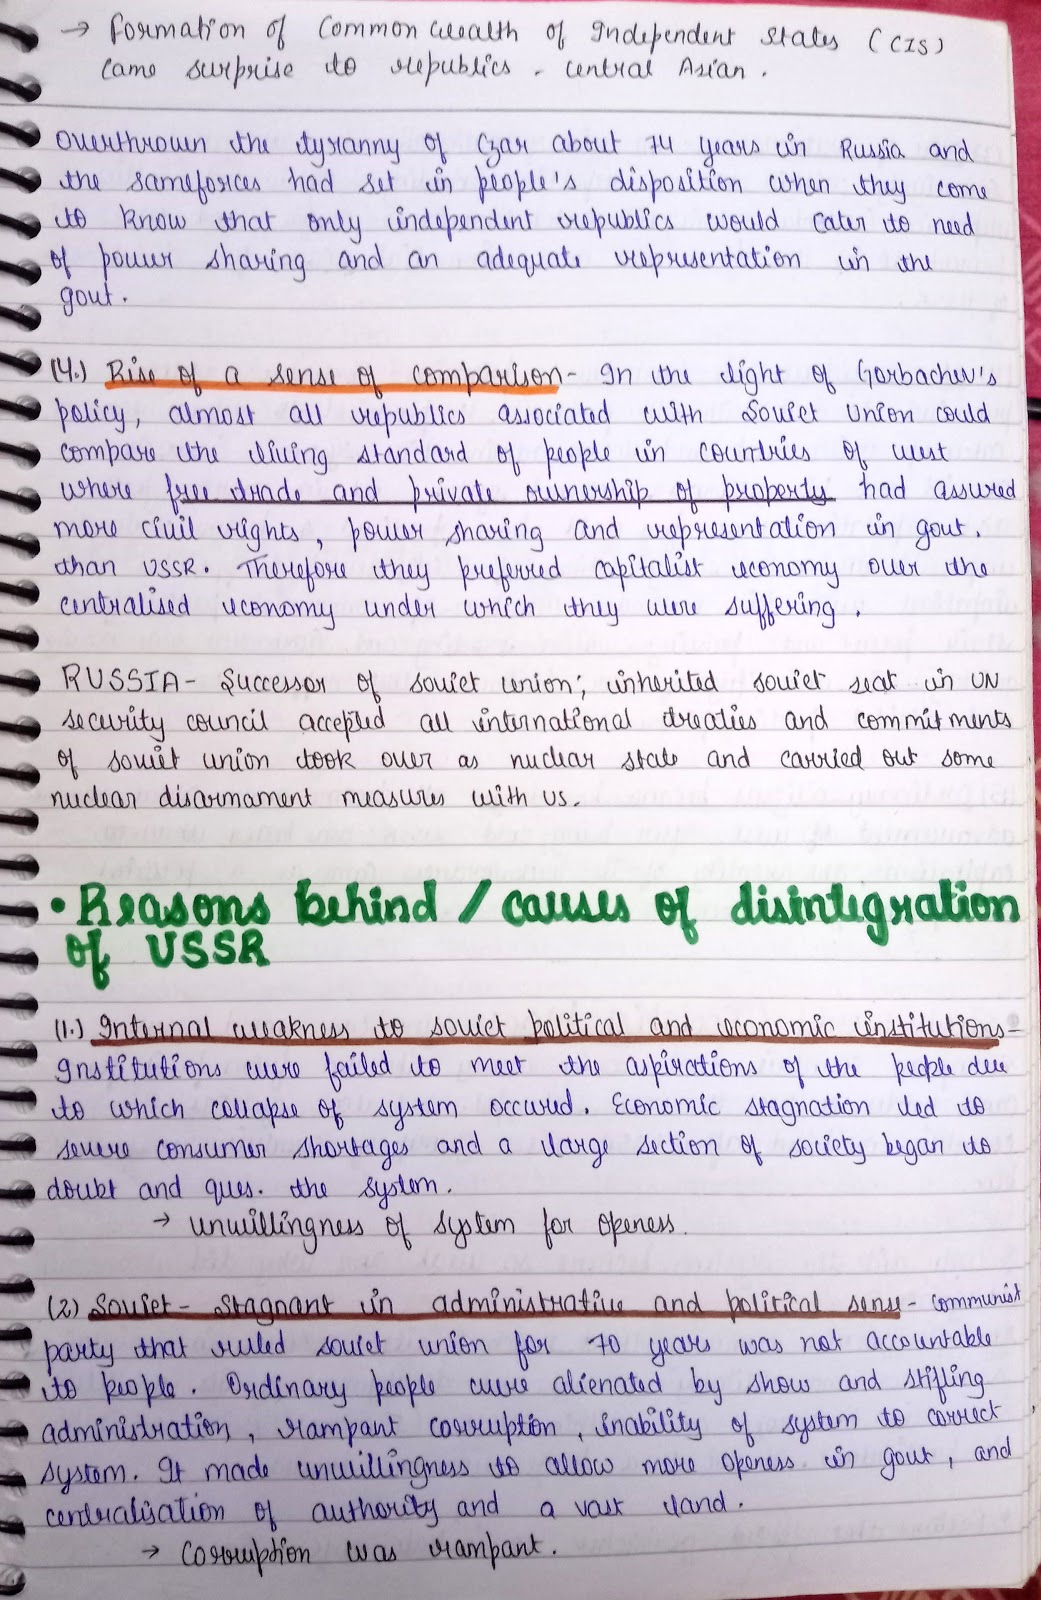 → Formation of Common Wealth of Independent States (CIS)
came surprise to republics - central Asian.
overthrown the tyranny of Czar about 74 years in Russia and
the sameforces had set in people's disposition when they come
to know that only independent republics would cater to need
of power sharing and an adequate representation in the
govt.
(4.) Rise of a sense of comparison- In the light of Gorbachev's
policy, almost all republics associated with Soviet Union could
compare the living standard of people in countries of west
where free trade and private ownership of property had assured
more civil rights, power sharing and representation in govt.
than USSR. Therefore they preferred capitalist economy over the
centralised economy under which they were suffering.
RUSSIA- Successor of soviet union; inherited soviet seat in UN
security council accepted all international treaties and commitments
of soviet union took over as nuclear state and carried out some
nuclear disarmament measures with US.
• Reasons behind / causes of disintegration
of USSR
(1.) Internal weakness to soviet political and economic institutions-
Institutions were failed to meet the aspirations of the people due
to which collapse of system occured. Economic stagnation led to
severe consumer shortages and a large section of society began to
doubt and ques. the system.
→ unwillingness of system for openess.
(2) Soviet- Stagnant in administrative and political sense - communist
party that ruled soviet union for 70 years was not accountable
to people. Ordinary people were alienated by show and stifling
administration, rampant corruption, inability of system to correct
system. It made unwillingness to allow more openess in govt, and
centralisation of authority and a vast land.
→ Corruption was rampant.